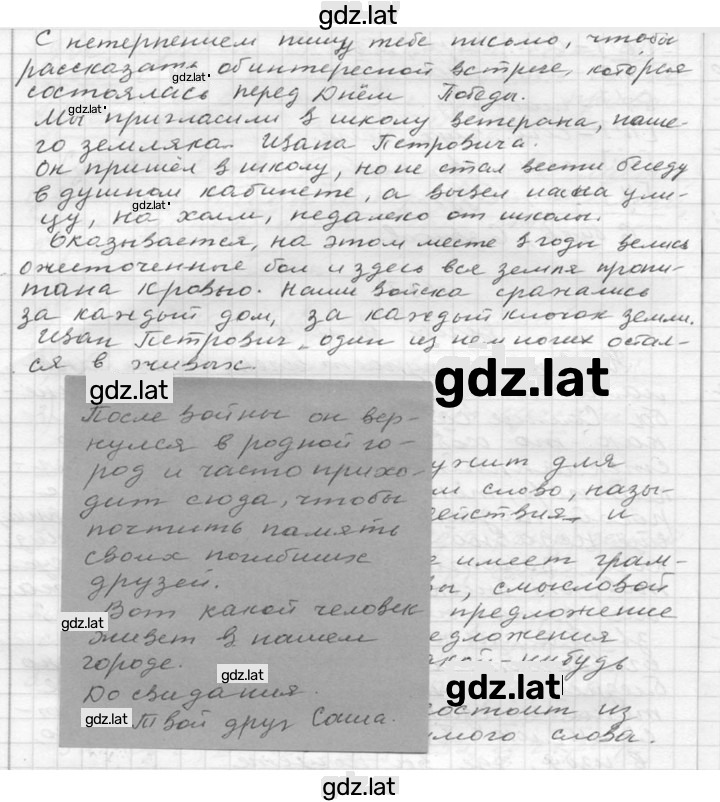 gdz.lat
С нетерпением пишу тебе письмо, чтобы
рассказать об интересной встрече, которая
gdz.lat
состоялась перед Днём Победы.
gdz.lat
Мы пригласили в школу ветерана, наше-
го земляка. Ивана Петровича.
Он пришёл в школу, но не стал вести беседу
в душном кабинете, а вывел нас на ули-
gdz.lat
цу, на холм, недалеко от школы.
Оказывается, на этом месте в годы велись
ожесточенные бои и здесь все земля пропи-
тана кровью. Наши войска сражались
за каждый дом, за каждый клочок земли.
Иван Петрович один из немногих остал-
ся в живых.
gdz.lat
gdz.lat
После войны он вер-
нулся в родной го-
род и часто прихо-
дит сюда, чтобы
почтить память
своих погибших
друзей.
Вот какой человек
gdz.lat
живет в нашем
городе.
gdz.lat
До свидания.
gdz.lat
Твой друг Саша.
ужит для
слово, назы-
ействия и
имеет грам-
ы, смысловой
предложение
едложения
-нибудь
gdz.lat
состоит из
мого слова.
gdz.lat